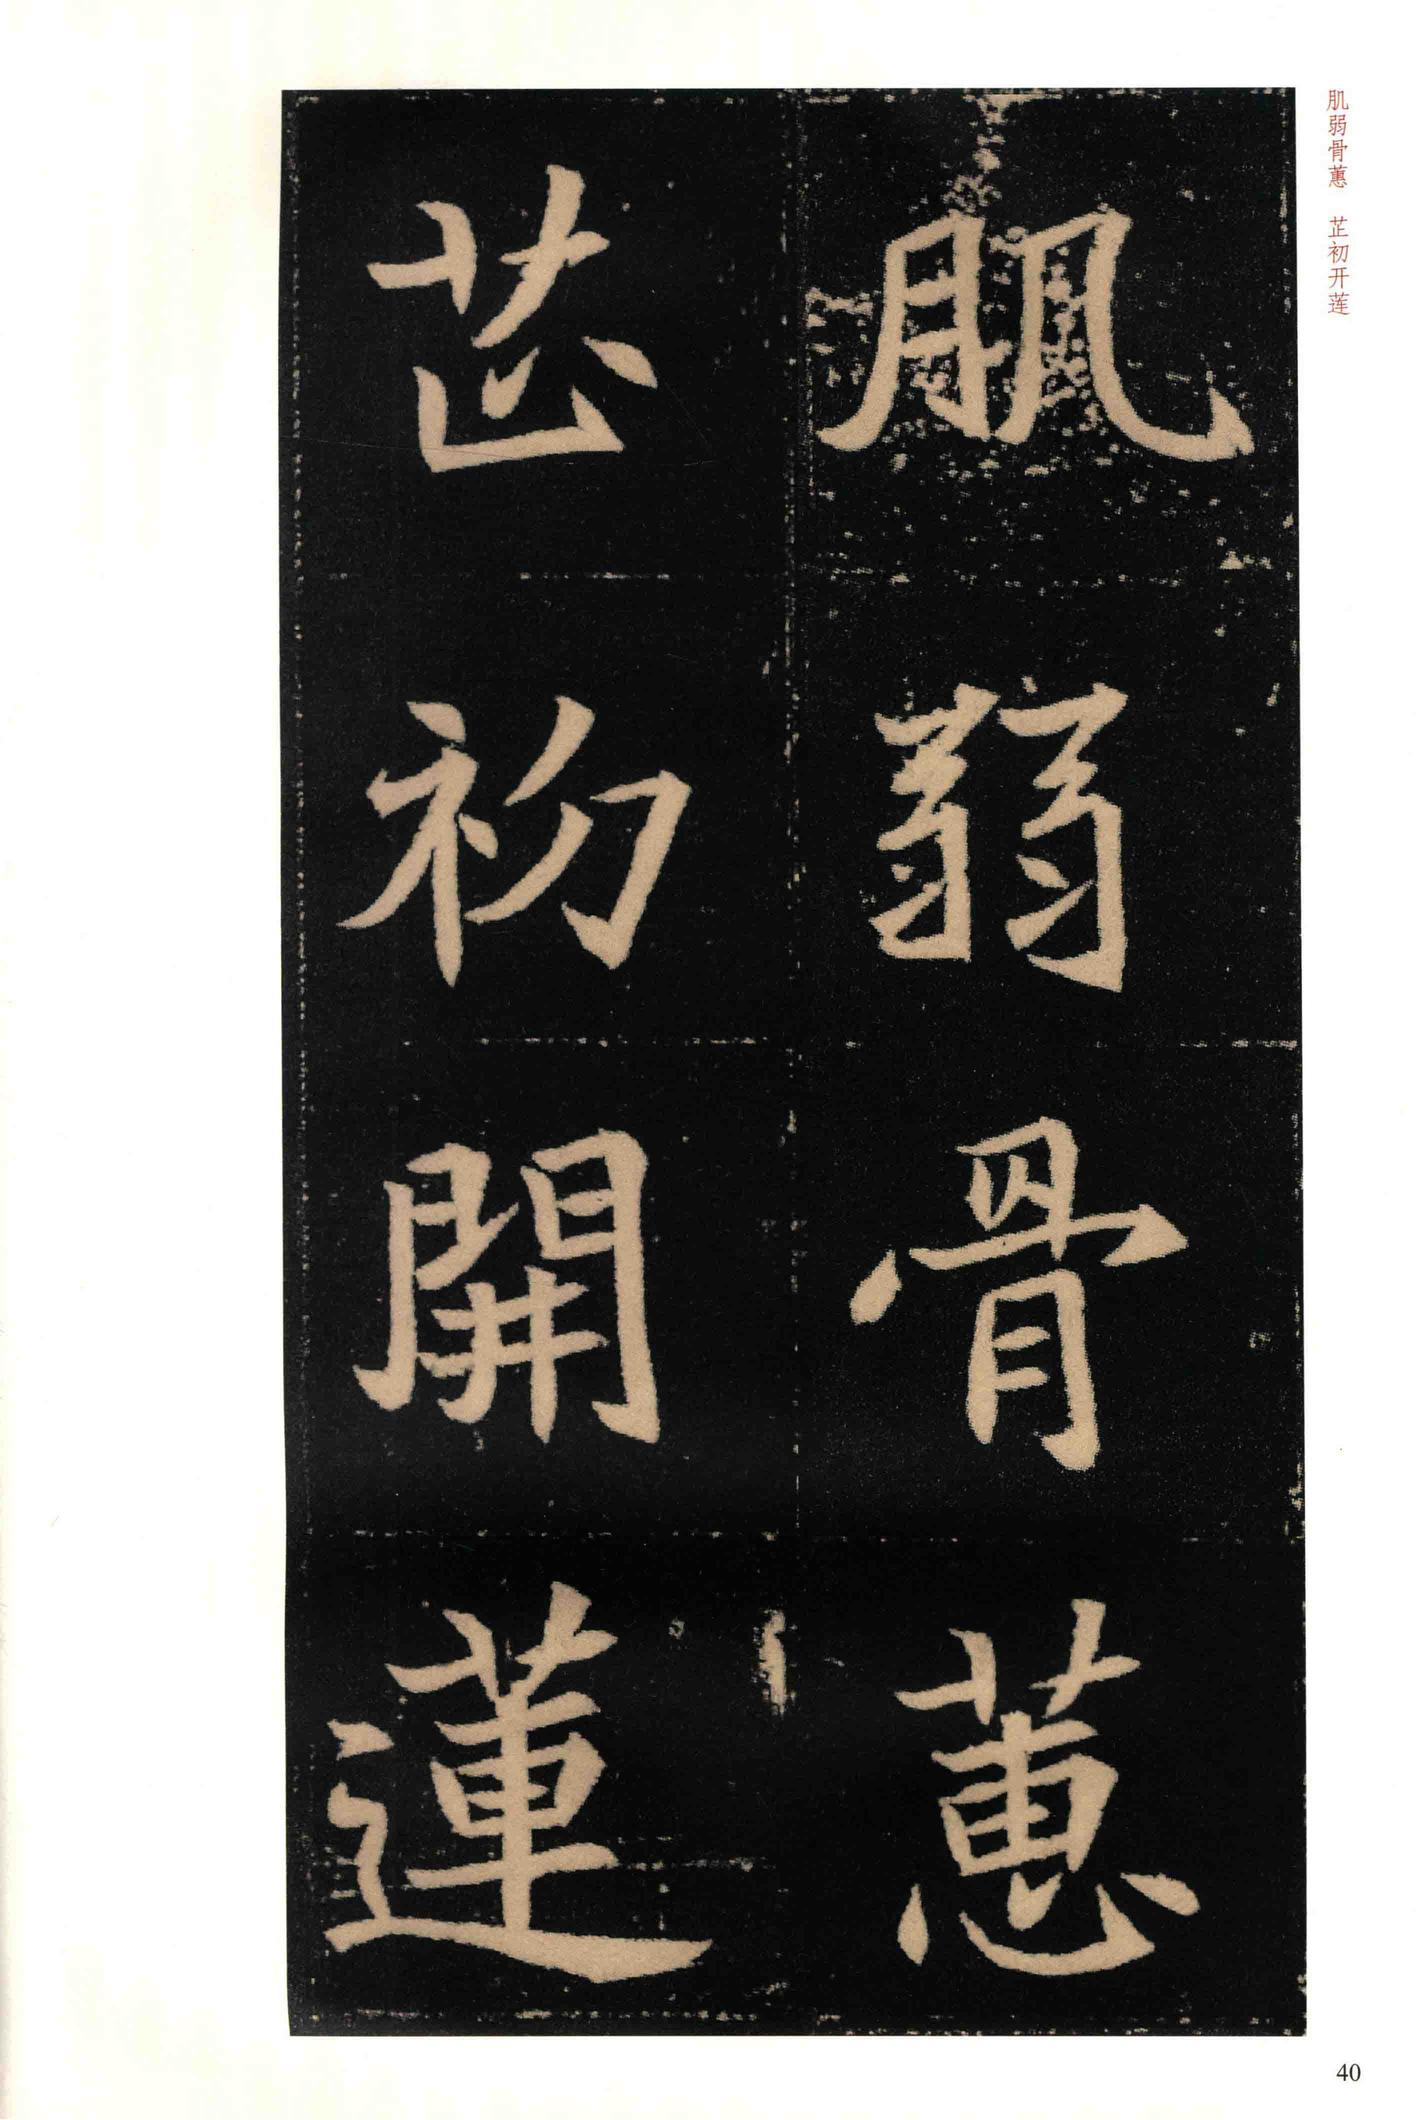 肌弱骨蕙 芷初开莲
肌弱骨蕙
芷初開蓮
40